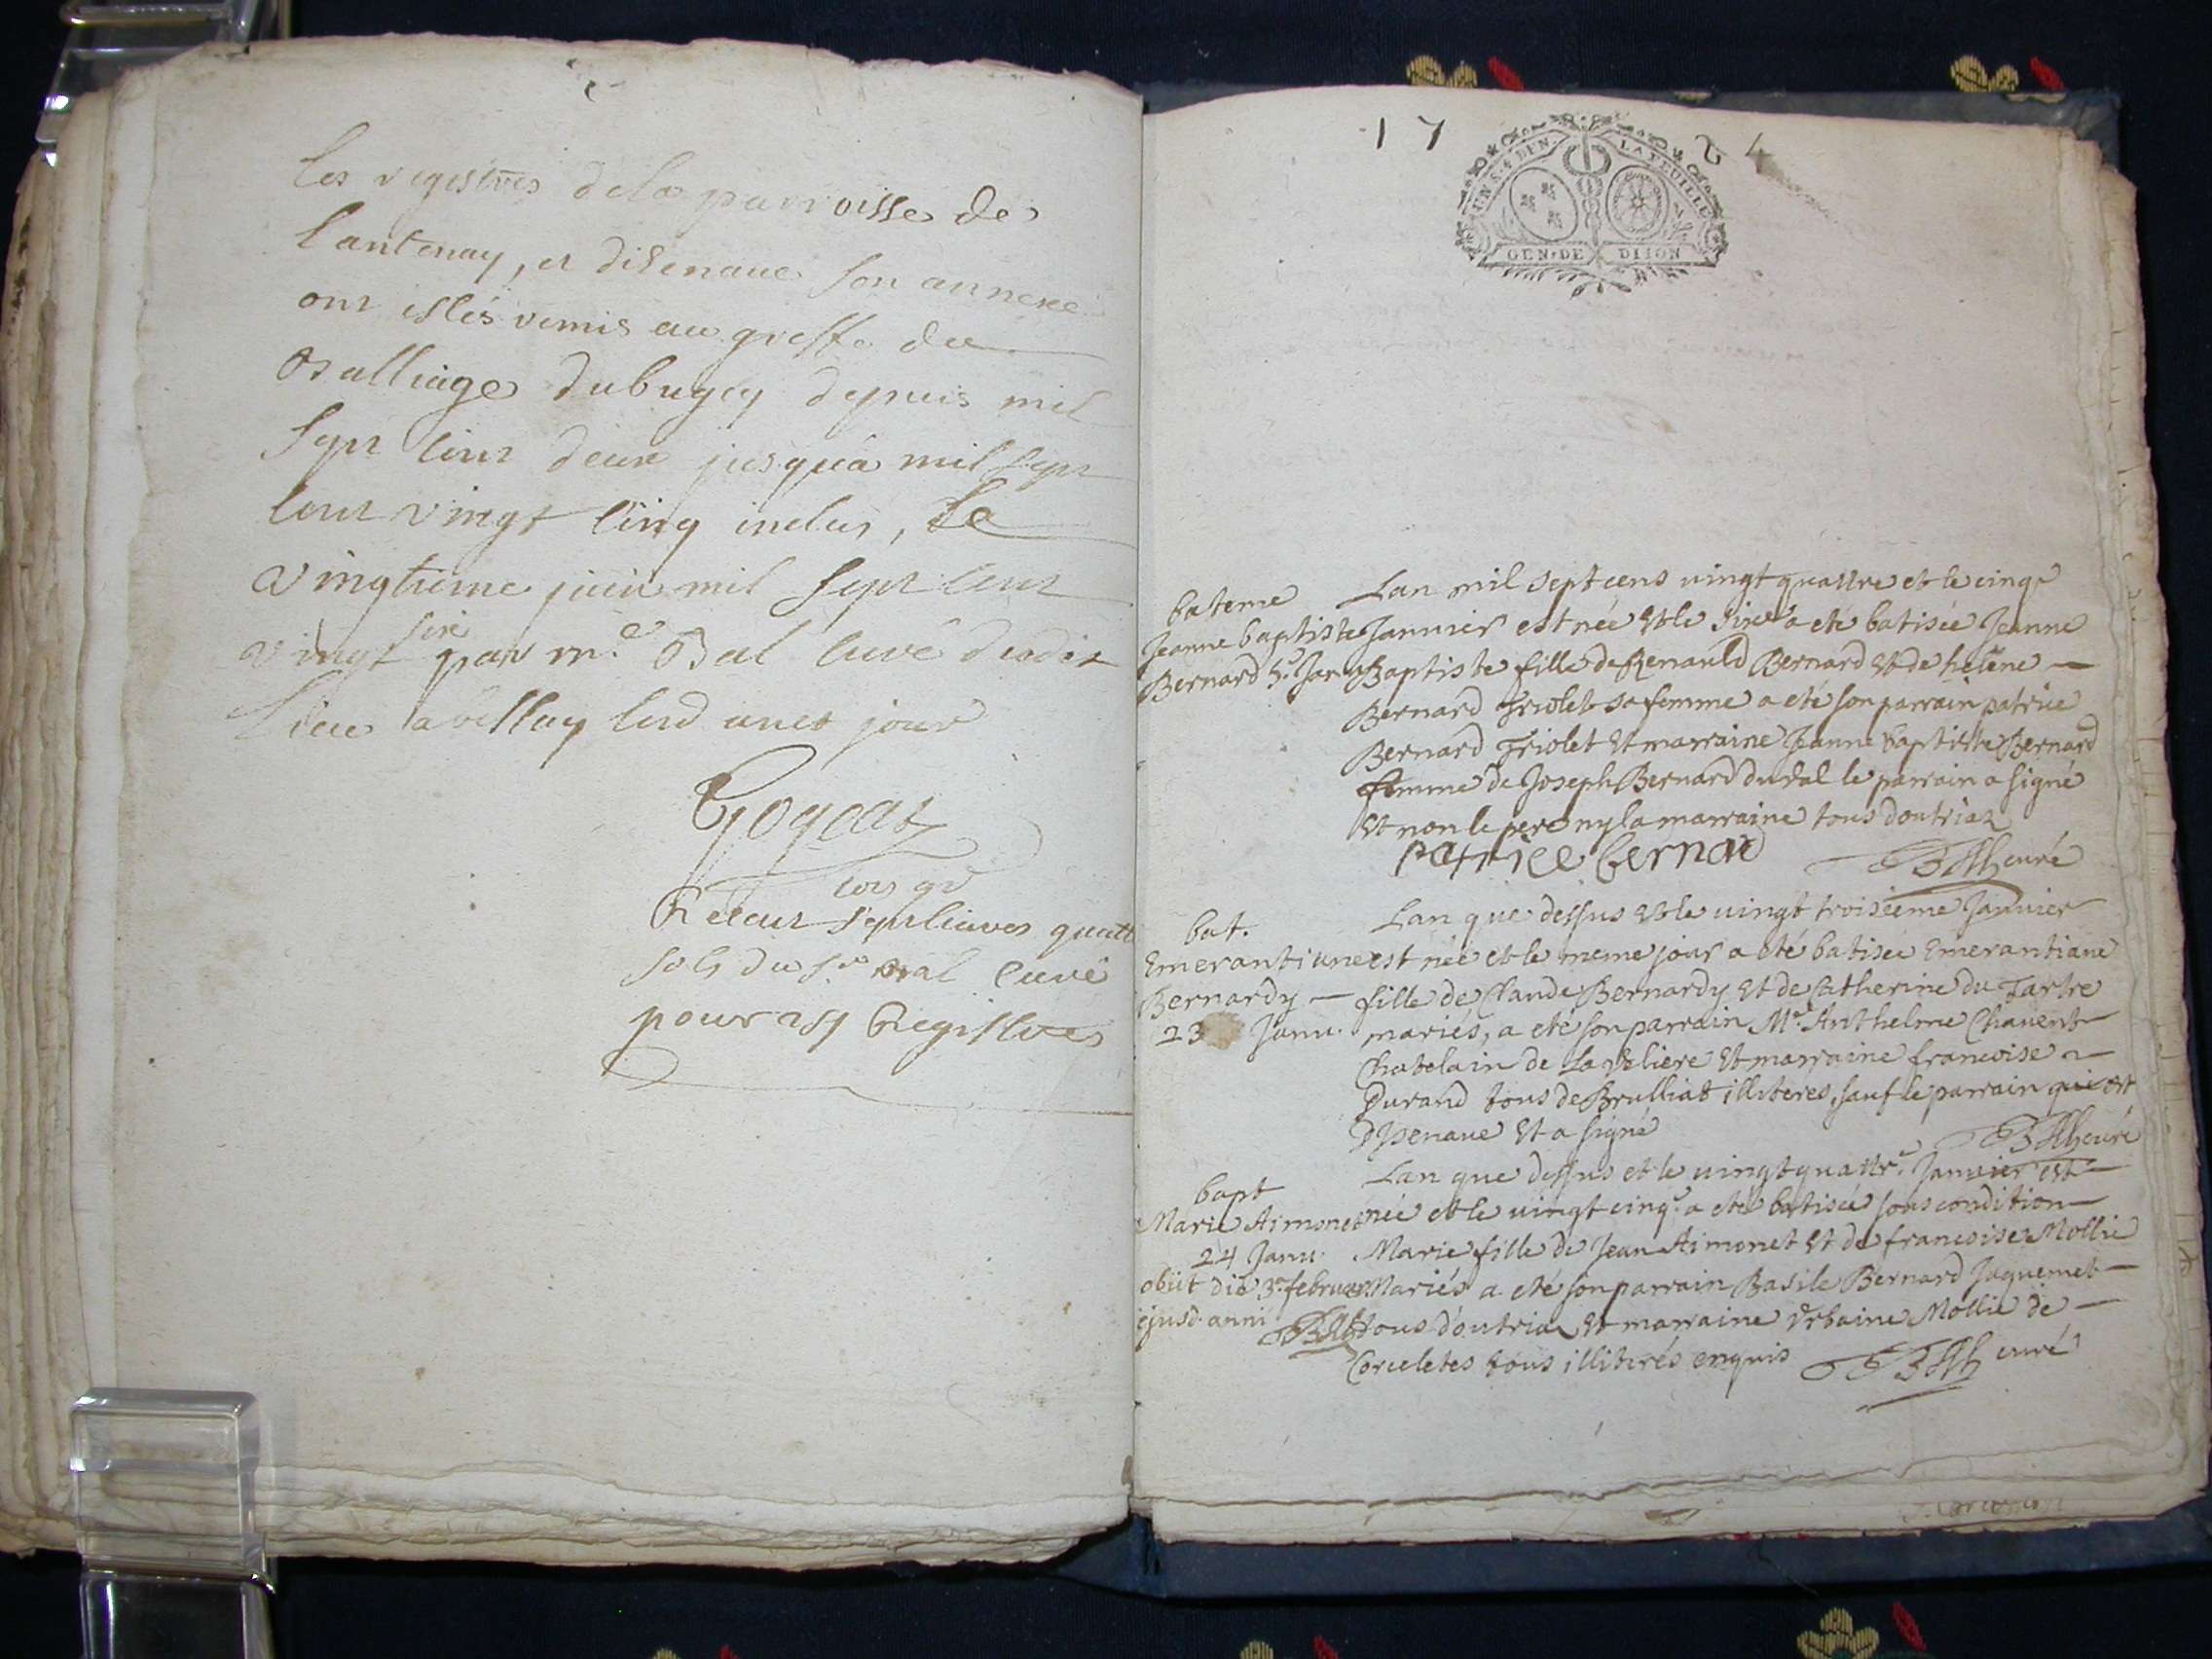 Les registres dela parroisse de
Lantenay, et disenaue son annexe
ont estés remis au greffe du
Balliage du bugey depuis mil
sept cent deux jusquâ mil sept
cent vingt cinq inclus, Le
vingtieme juin mil sept cent
vingt six par mre Bal curé dudit
lieu a belley lesd an et jour
Gogeat
Receut sept livres quatt
sols du sr bal curé
pour Registres
17 24
UN S. 4 DEN. LA FEUILLE
GEN. DE DIION
bateme
Jeanne baptiste
Bernard 5e Janv
Lan mil sept cens vingt quattre et le cinqe
Januier est née et le sixe a eté batisée Jeanne
Baptiste fille de Renauld Bernard et de helene
Bernard Friolet sa femme a eté son parrain patrice
Bernard Friolet et marraine Jeanne baptiste Bernard
femme de Joseph Bernard du val le parrain a signé
et non le pere ny la marraine tous doutriaz
patrice bernard
curé
bat.
Emerantiane
Bernardy
23 Janu.
Lan que dessus et le uingt troisieme Januier
est née et le meme jour a eté batisée Emerantiane
fille de Claude Bernardy et de Catherine du Tartre
mariés, a eté son parrain Me Anthelme Chauent
Chatelain de La veliere et marraine francoise
Durand tous de Brulliat illiteres, sauf le parrain qui est
Disenaue et a signé
curé
bapt
Marie Aimonet
24 Janu.
obiit die 3a februar.
ejusd. anni
Lan que dessus et le uingt quattre Januier est
née et le uingt cinqe a eté batisée sous condition
Marie fille de Jean Aimonet et de francoise Mollie
Mariés a eté son parrain Basile Bernard Jaquemet
tous doutriaz et marraine Vrbaine Mollie de
Corceletes tous illiterés enquis
curé